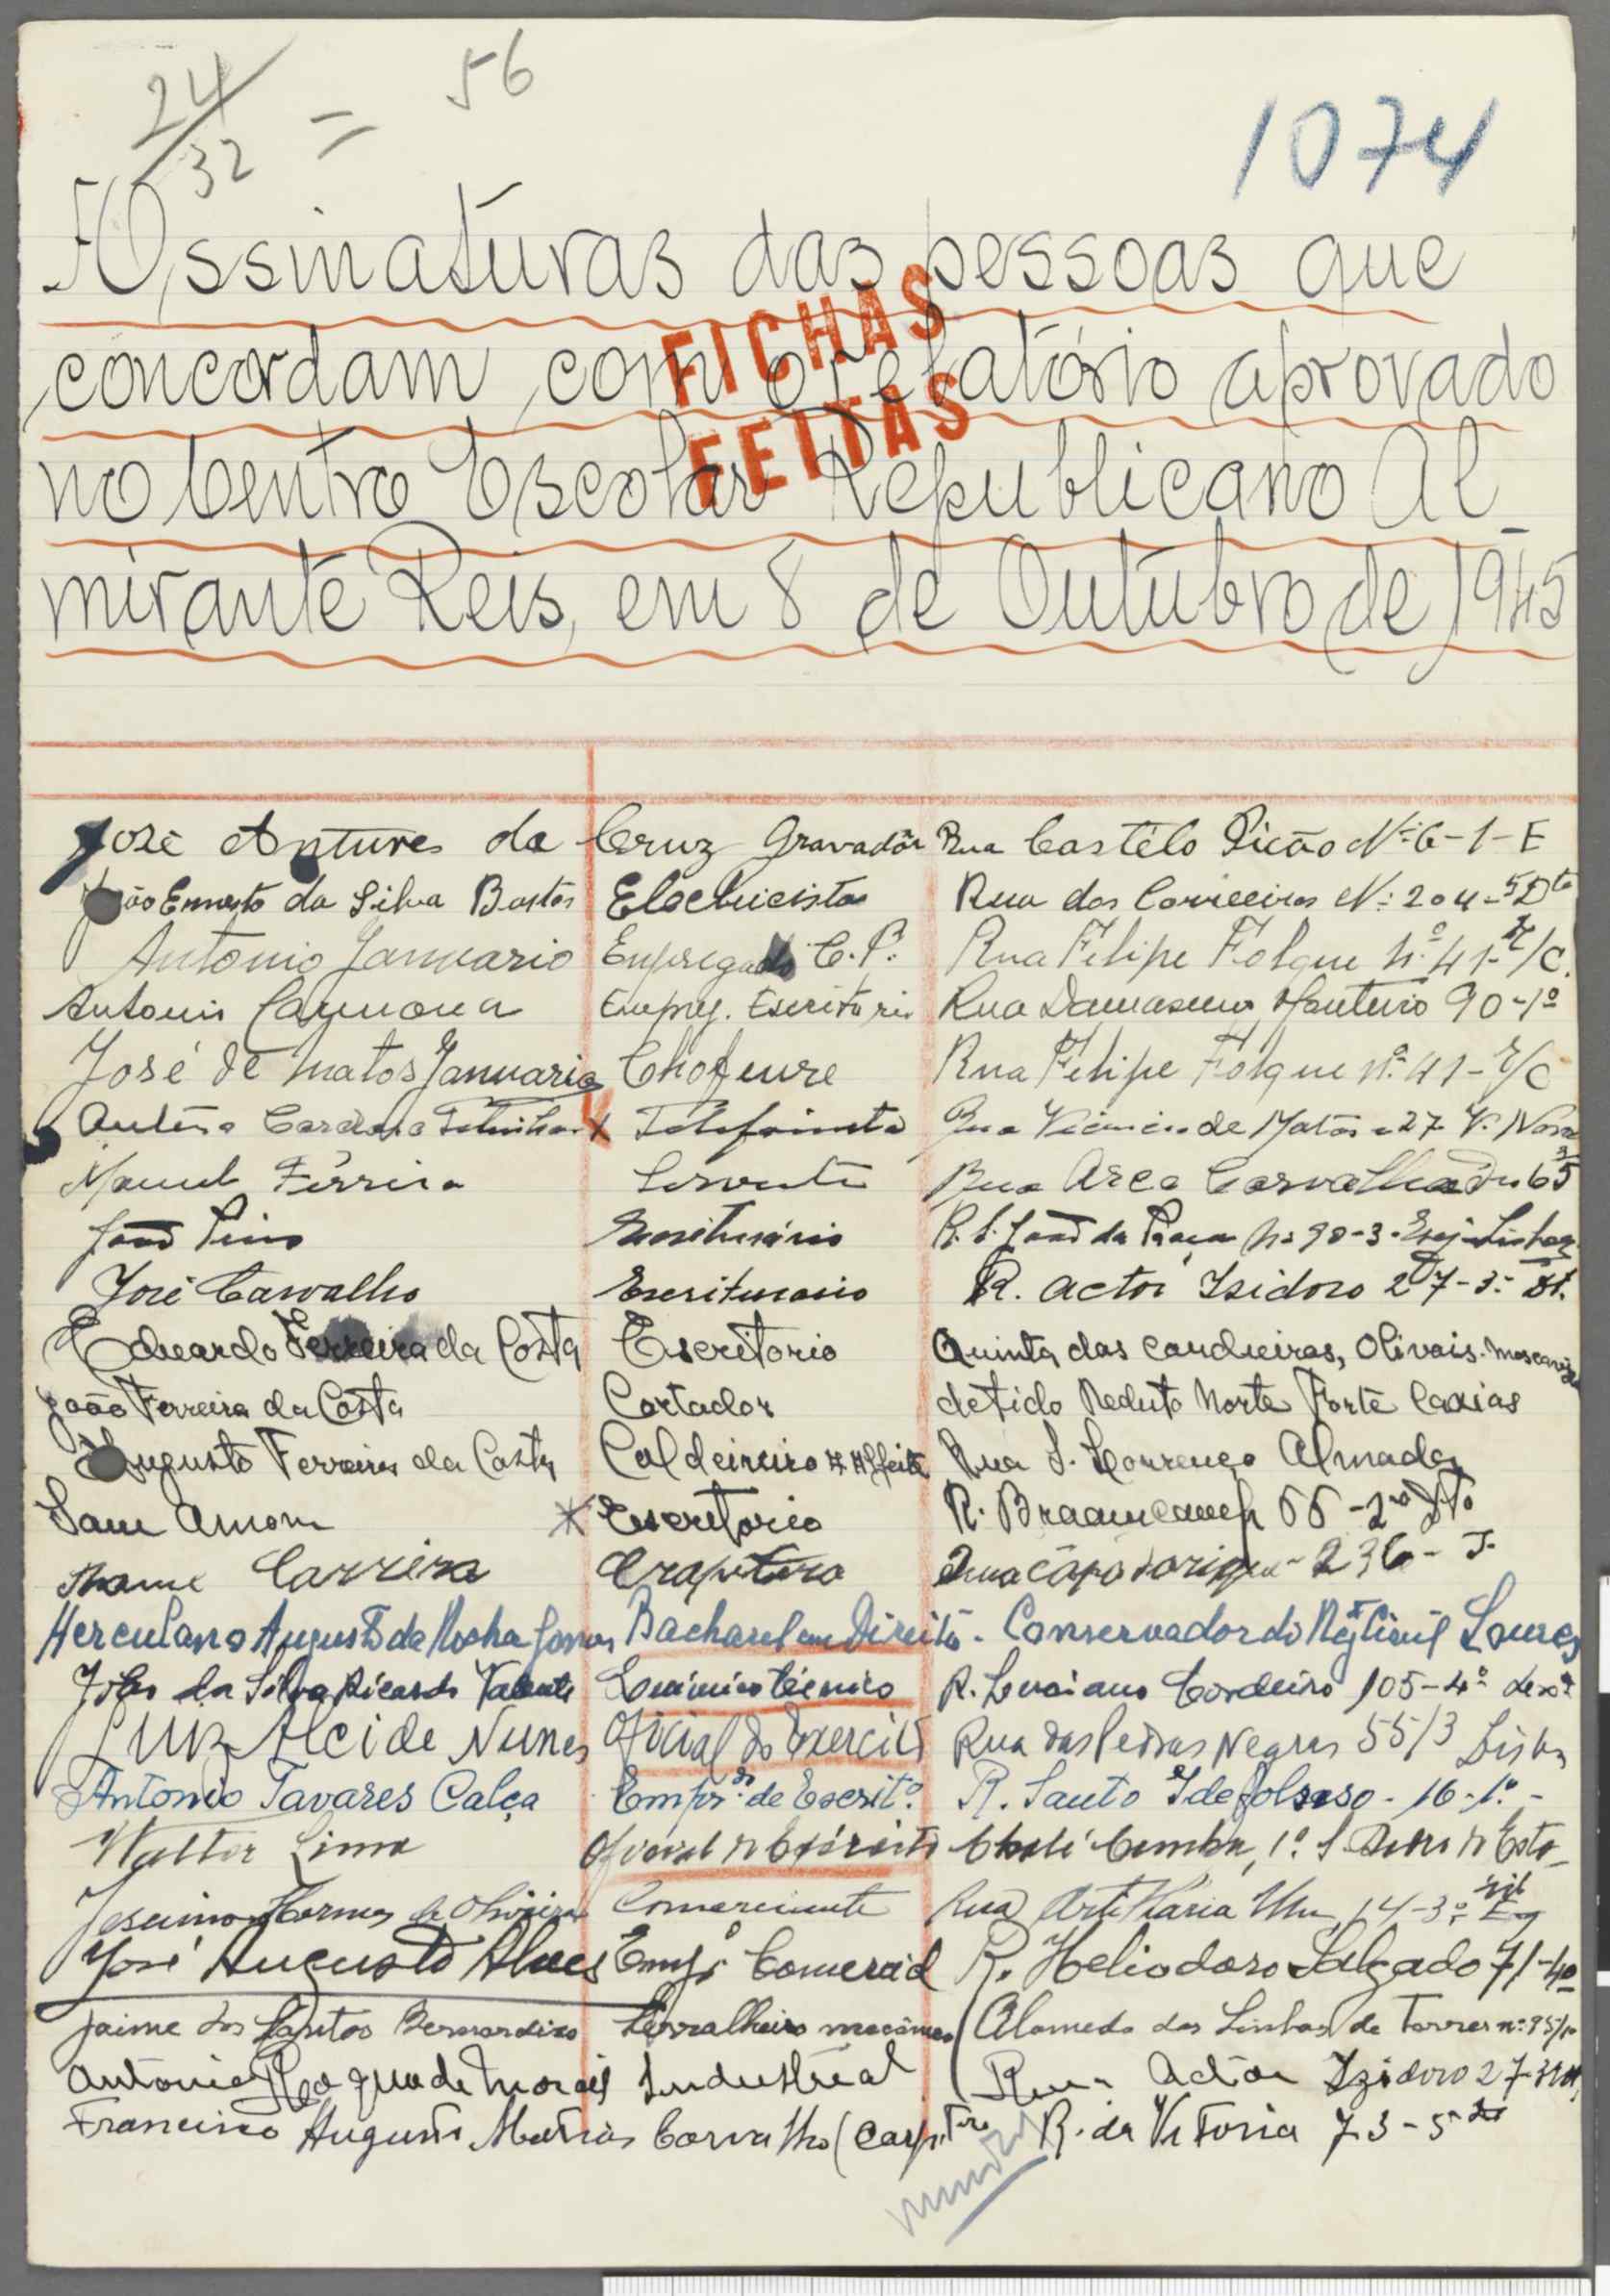 24/32 = 56
1074
Assinaturas das pessoas que
concordam com o relatório aprovado
no Centro Escolar Republicano Al-
mirante Reis, em 8 de Outubro de 1945
FICHAS
FEITAS
José Antunes da Cruz Gravador Rua Castélo Picão Nº 6-1-E
João Ernesto da Silva Bastos Electricista Rua dos Correeiros Nº 204-5º Dto
Antonio Januario Empregado C.P. Rua Filipe Folque nº 41-r/c.
Antonio Empreg. Escritorio Rua Damasceno Monteiro 90-1º
José de Matos Januario Chofeure Rua Filipe Folque nº 41-r/c
Cardoso Telefonista Rua de Matos 27 V. Nova
Manuel Ferreira Servente Rua Arco Carvalhão 65
João Pires Escriturário R. S. João da Praça Nº 90-3-Esq-Lisboa
José Carvalho Escriturario R. actor Isidoro 27-3º Dt.
Eduardo Ferreira da Costa Escritorio Quinta das Candieiras, Olivais-Moscavide
João Ferreira da Costa Cortador detido Reduto Norte Forte Caxias
Augusto Ferreira da Costa Caldeireiro Alfeite Rua S. Lourenço Almada
Sam Amom * Escritorio R. Braamcamp 66-2º Dto
Carreira 236-
Herculano Augusto da Rocha Bacharel em Direito - Conservador do Reg Civil Loures
da Silva Ricardo Valente Químico técnico R. Luciano Cordeiro 105-4º
Luiz Alcide Nunes Oficial do Exercito Rua das Pedras Negras 55/3 Lisboa
Antonio Tavares Calça Empr.do de Escrit.º R. Santo Idefolsaso-16-1.º-
Walter Lima Oficial do Exército Chalé 1º S. do Esto-
Hermes de Oliveira Comerciante Rua Artilharia Um, 14-3º Esq
José Augusto Alves Empº Comercial R. Heliodoro Salgado 71-4º
Jaime dos Santos Bernardino Serralheiro mecânico Alameda das Linhas de Torres nº 95/1º
Antonio Roque de Morais Industrial Rua Actor Izidoro 27-3
Francisco Augusto Matias Carvalho (Carp.tro R. da Vitoria 73-5º